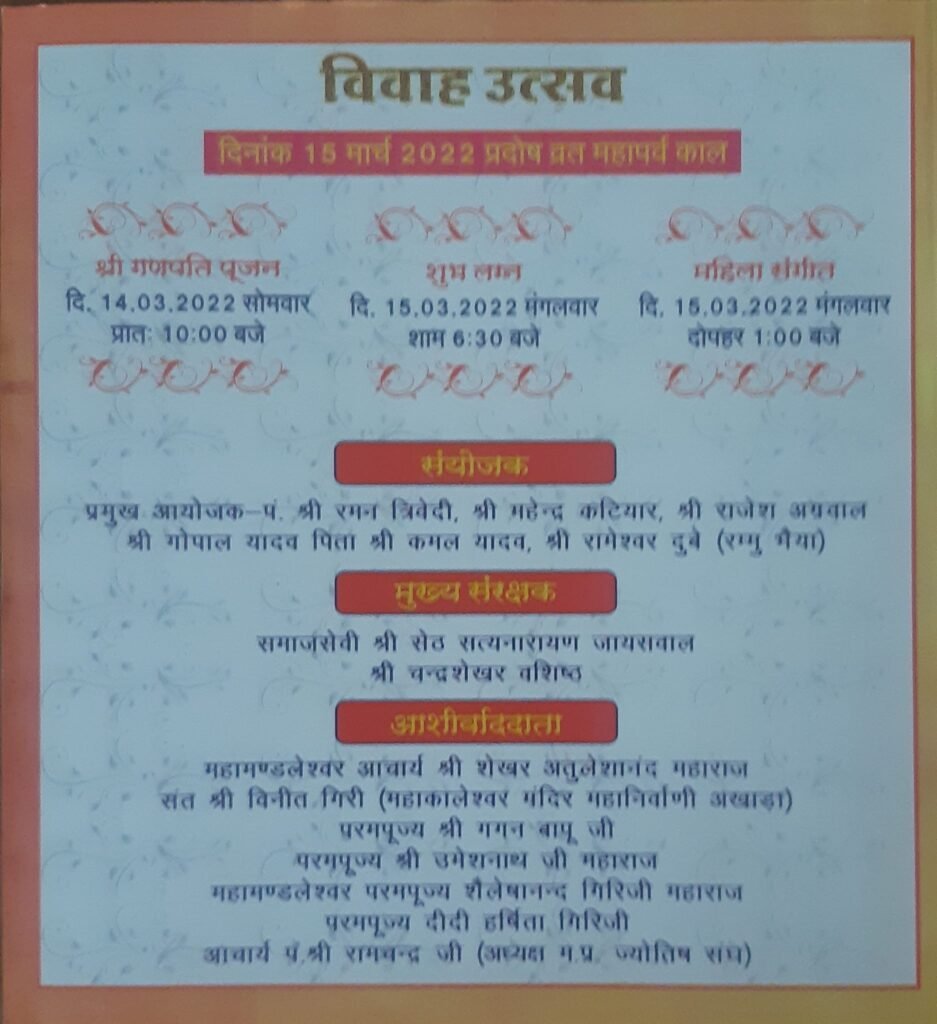 विवाह उत्सव
दिनांक 15 मार्च 2022 प्रदोष व्रत महापर्व काल
श्री गणपति पूजन
दि. 14.03.2022 सोमवार
प्रातः 10:00 बजे
शुभ लग्न
दि. 15.03.2022 मंगलवार
शाम 6:30 बजे
महिला संगीत
दि. 15.03.2022 मंगलवार
दोपहर 1:00 बजे
संयोजक
प्रमुख आयोजक–पं. श्री रमन त्रिवेदी, श्री महेन्द्र कटियार, श्री राजेश अग्रवाल
श्री गोपाल यादव पिता श्री कमल यादव, श्री रामेश्वर दुबे (रम्मु भैया)
मुख्य संरक्षक
समाजसेवी श्री सेठ सत्यनारायण जायसवाल
श्री चन्द्रशेखर वशिष्ठ
आशीर्वाददाता
महामण्डलेश्वर आचार्य श्री शेखर अतुलेशानंद महाराज
संत श्री विनीत गिरी (महाकालेश्वर मंदिर महानिर्वाणी अखाड़ा)
परमपूज्य श्री गगन बापू जी
परमपूज्य श्री उमेशनाथ जी महाराज
महामण्डलेश्वर परमपूज्य शैलेषानन्द गिरिजी महाराज
परमपूज्य दीदी हर्षिता गिरिजी
आचार्य पं.श्री रामचन्द्र जी (अध्यक्ष म.प्र. ज्योतिष संघ)